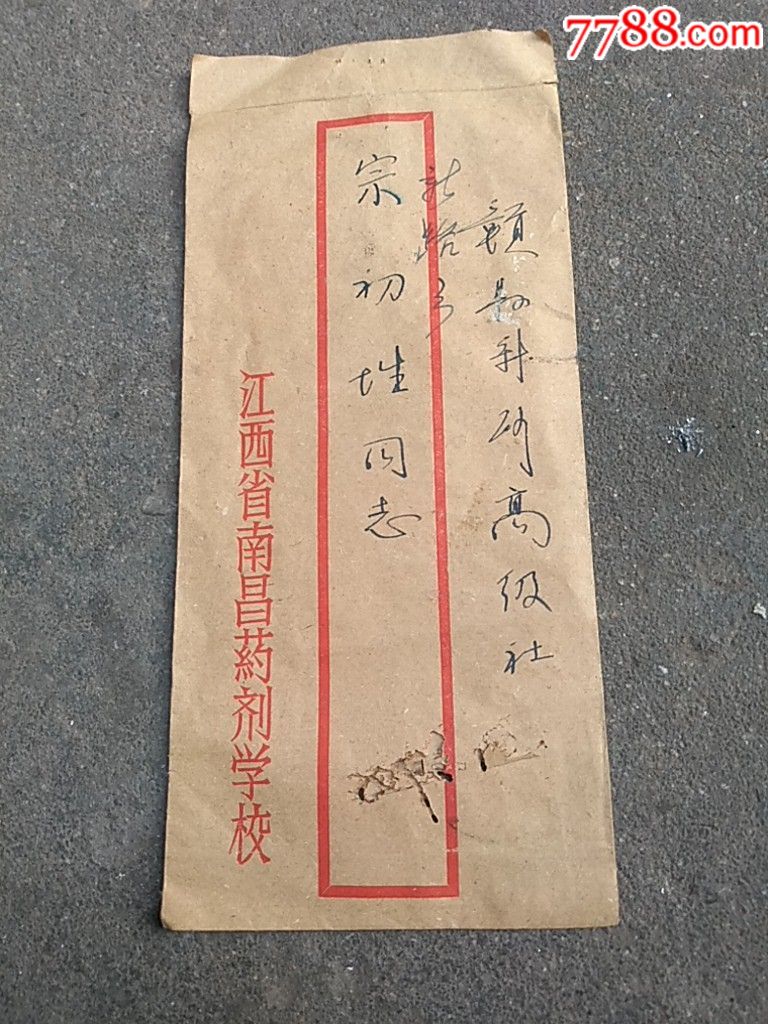 7788.com
赣县科研高级社
宗初堆同志
江西省南昌药剂学校